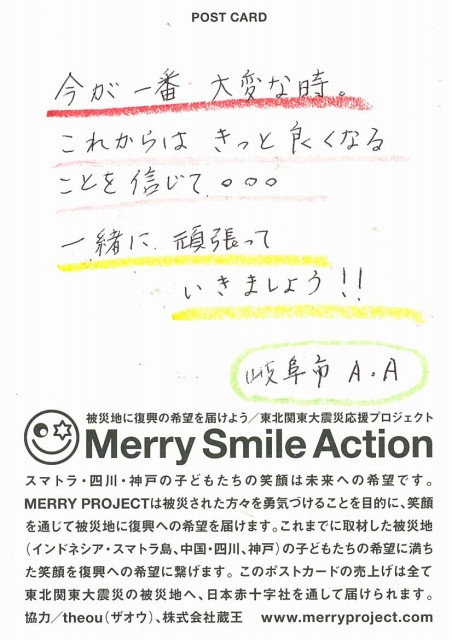 POST CARD
今が一番 大変な時。
これからは きっと 良くなる
ことを 信じて。。。
一緒に 頑張って
いきましょう!!
岐阜市 A.A
被災地に復興の希望を届けよう／東北関東大震災応援プロジェクト
Merry Smile Action
スマトラ・四川・神戸の子どもたちの笑顔は未来への希望です。
MERRY PROJECTは被災された方々を勇気づけることを目的に、笑顔
を通じて被災地に復興への希望を届けます。これまでに取材した被災地
（インドネシア・スマトラ島、中国・四川、神戸）の子どもたちの希望に満ち
た笑顔を復興への希望に繋げます。このポストカードの売上げは全て
東北関東大震災の被災地へ、日本赤十字社を通して届けられます。
協力／theou（ザオウ）、株式会社蔵王 www.merryproject.com